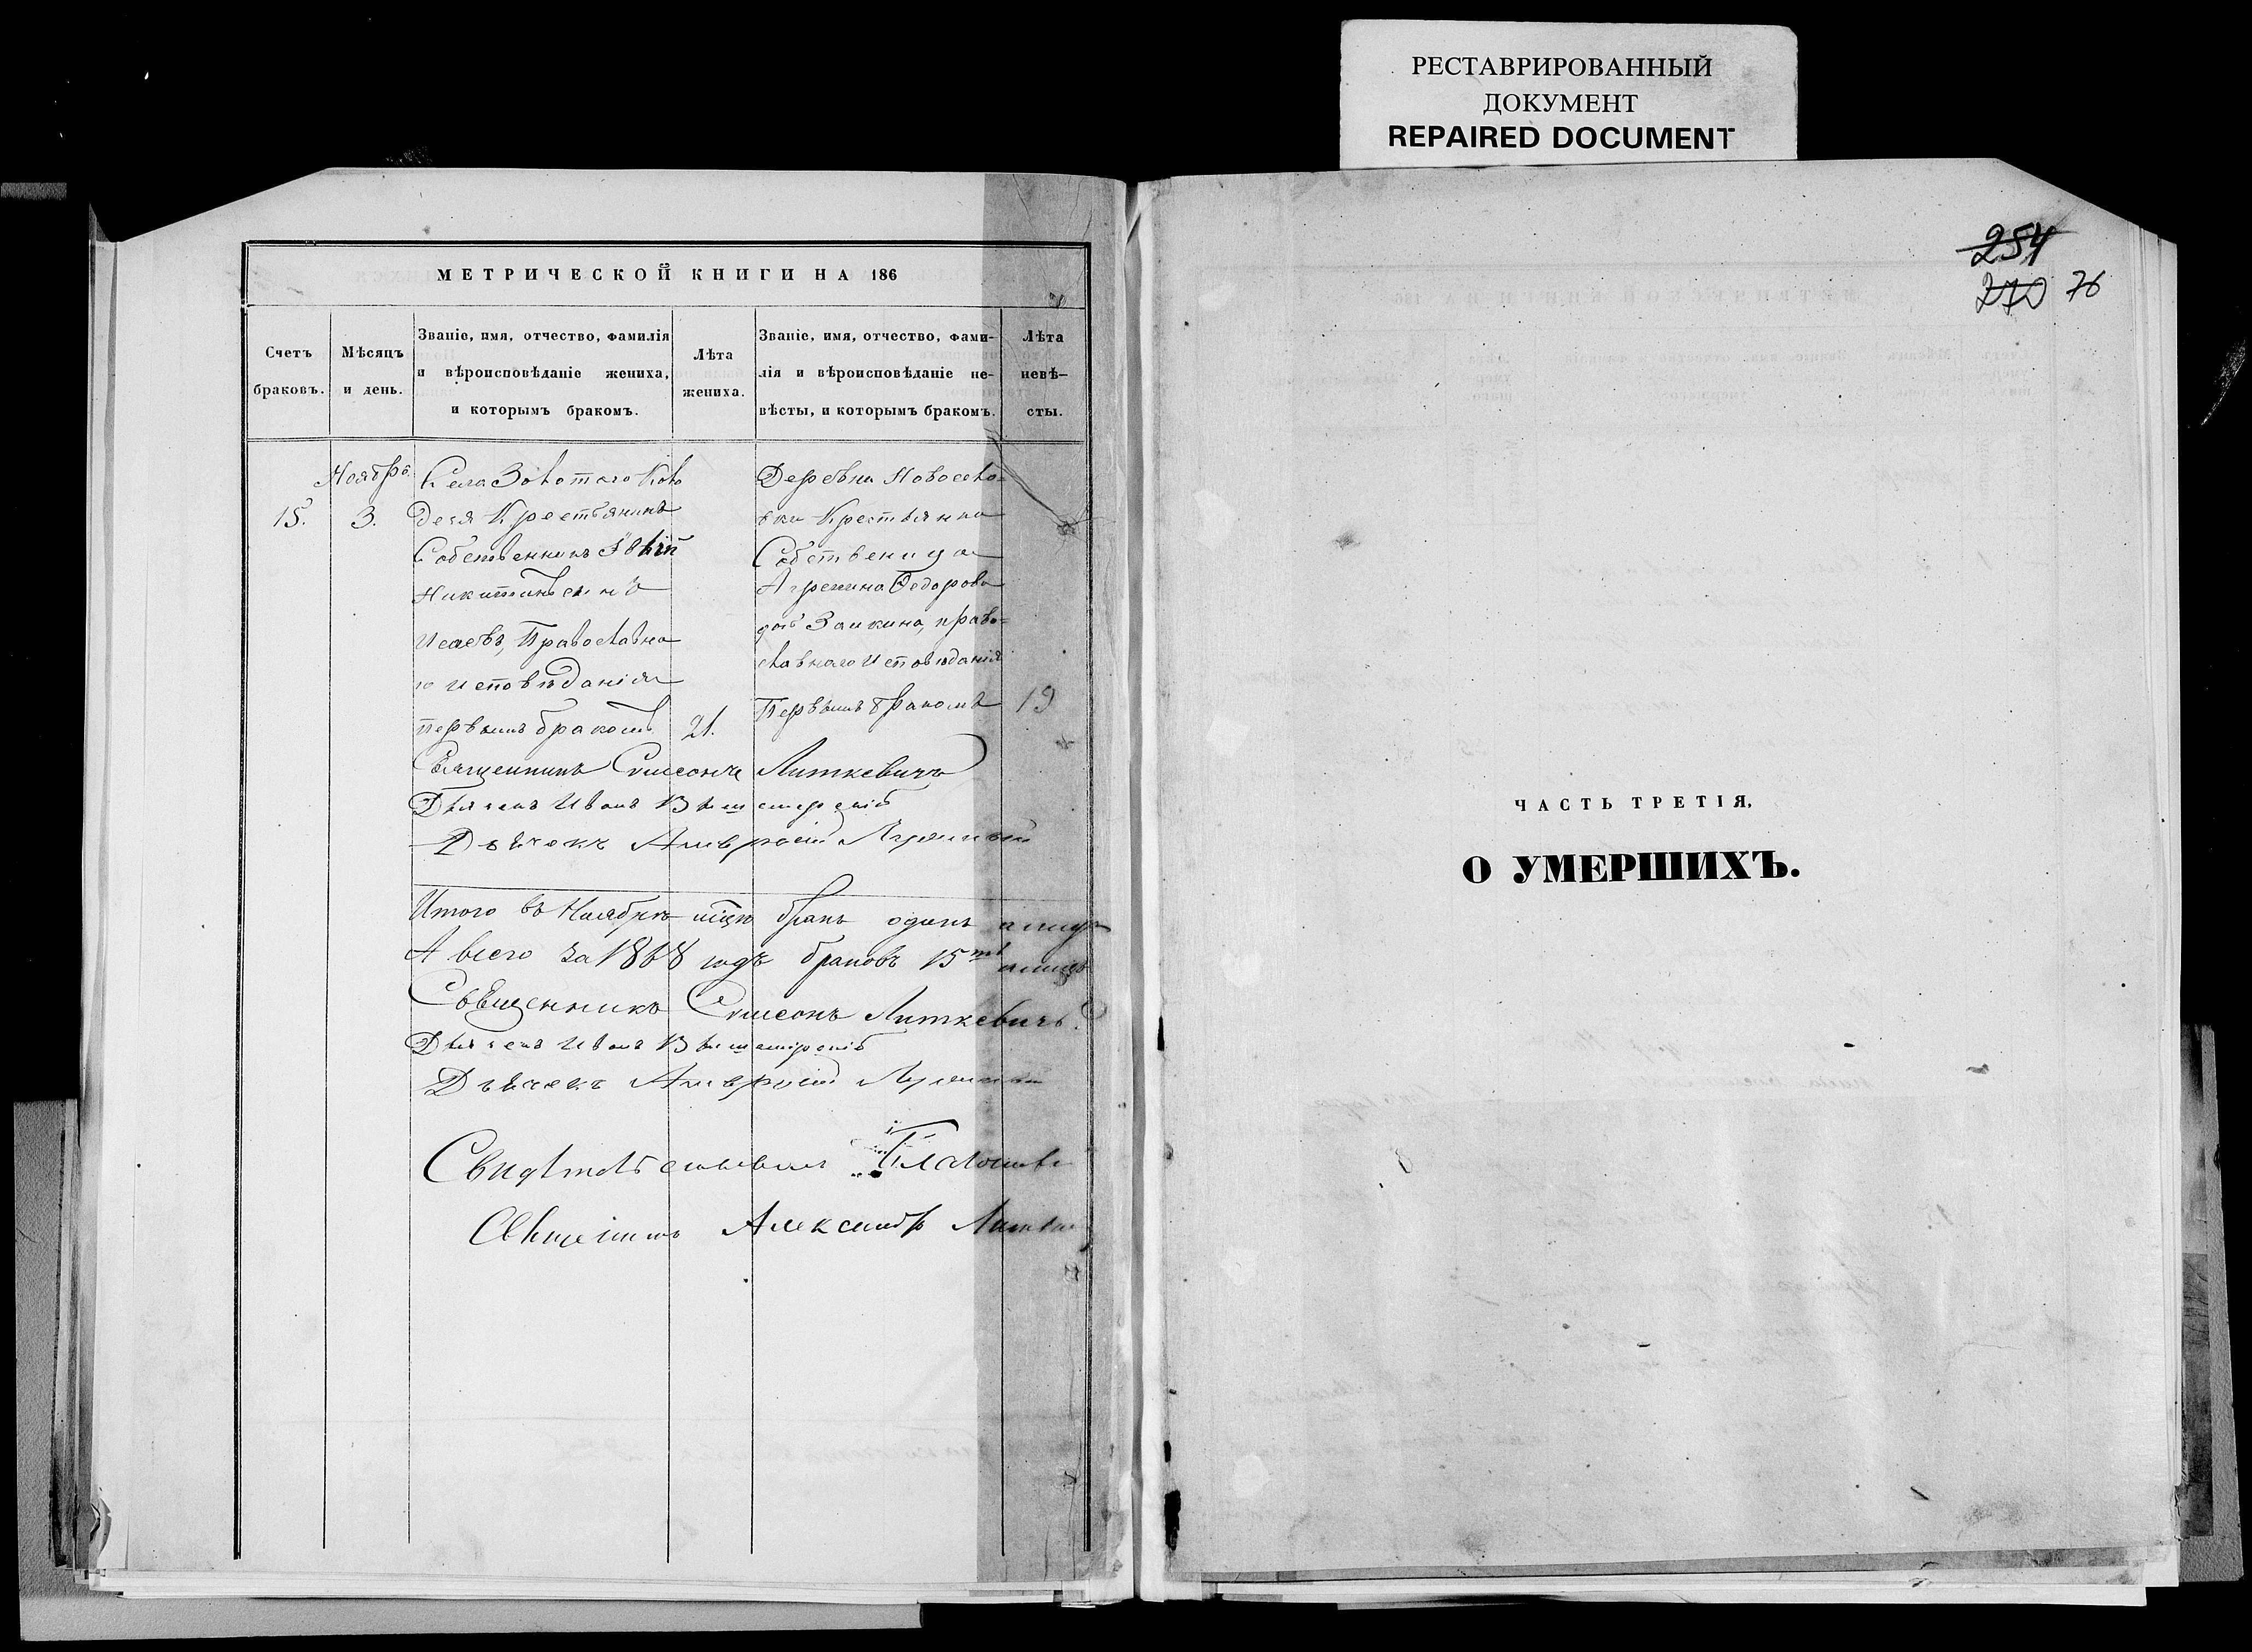 РЕСТАВРИРОВАННЫЙ
ДОКУМЕНТ
REPAIRED DOCUMENT
МЕТРИЧЕСКОЙ КНИГИ НА 186
Счетъ
браковъ.
Мѣсяцъ
и день.
Званіе, имя, отчество, фамилія
и вѣроисповѣданіе жениха,
и которымъ бракомъ.
Лѣта
жениха.
Званіе, имя, отчество, фами-
лія и вѣроисповѣданіе не-
вѣсты, и которымъ бракомъ.
Лѣта
невѣ-
сты.
15.
Ноября
3.
Села Золотаго Коло
дезя Крестьянинъ
Собственникъ
Никитинъ
Исаевъ, Православна
го исповѣданія
первымъ бракомъ
21.
Деревни Новосело=
вки Крестьянка
Собственица
Агрепина Федорова
дочь Заикина, право=
славнаго исповѣданія
Первымъ бракомъ
19
Священникъ Симеонъ Литкевичъ
Дьячекъ Иванъ
Дьячекъ Амвросій
Итого въ Ноябрѣ мѣсцѣ бракъ одинъ
А всего за 1868 годъ браковъ 15ть
Священникъ Симеонъ Литкевичъ.
Дьячекъ Иванъ
Дьячекъ Амвросій
Свидѣтельствовалъ
Священникъ Александръ
254
270 76
ЧАСТЬ ТРЕТІЯ,
О УМЕРШИХЪ.